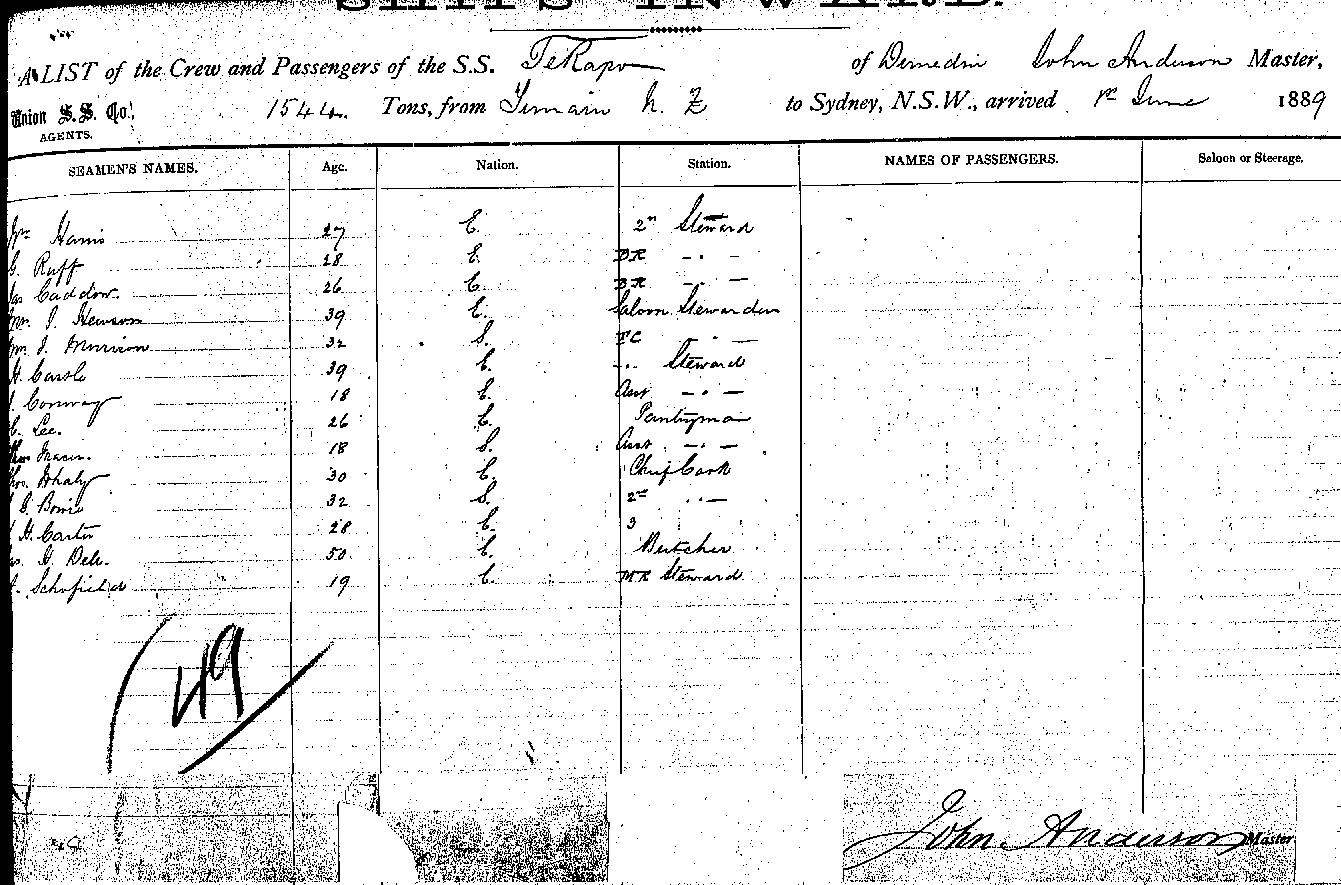 A LIST of the Crew and Passengers of the S.S. TeKapo of Dunedin John Anderson Master,
Union S.S. Co., AGENTS. 1544 Tons, from Timaru N. Z to Sydney, N.S.W., arrived 1st June 1889
SEAMEN'S NAMES. Age. Nation. Station. NAMES OF PASSENGERS. Saloon or Steerage.
Wm Harris 27 E. 2nd Steward
G. Ruff 28 E. BR - . -
Jas Caddow. 26 E. BR - . -
J. Hewson 39 E. Saloon Stewardess
J. Morrison 32 S. FC - . -
H. Castle 39 E. - . . Steward
Conway 18 E. Asst - . -
C. Lee. 26 E. Pantryman
Fraser. 18 S. Asst. - . -
Thos. Whaly 30 E. Chief Cook
Bowie 32 S. 2nd . . -
H. Carter 28 E. 3
H. Dell. 50 E. Butcher
Schofield 19 E. MR Steward
49
John Anderson Master